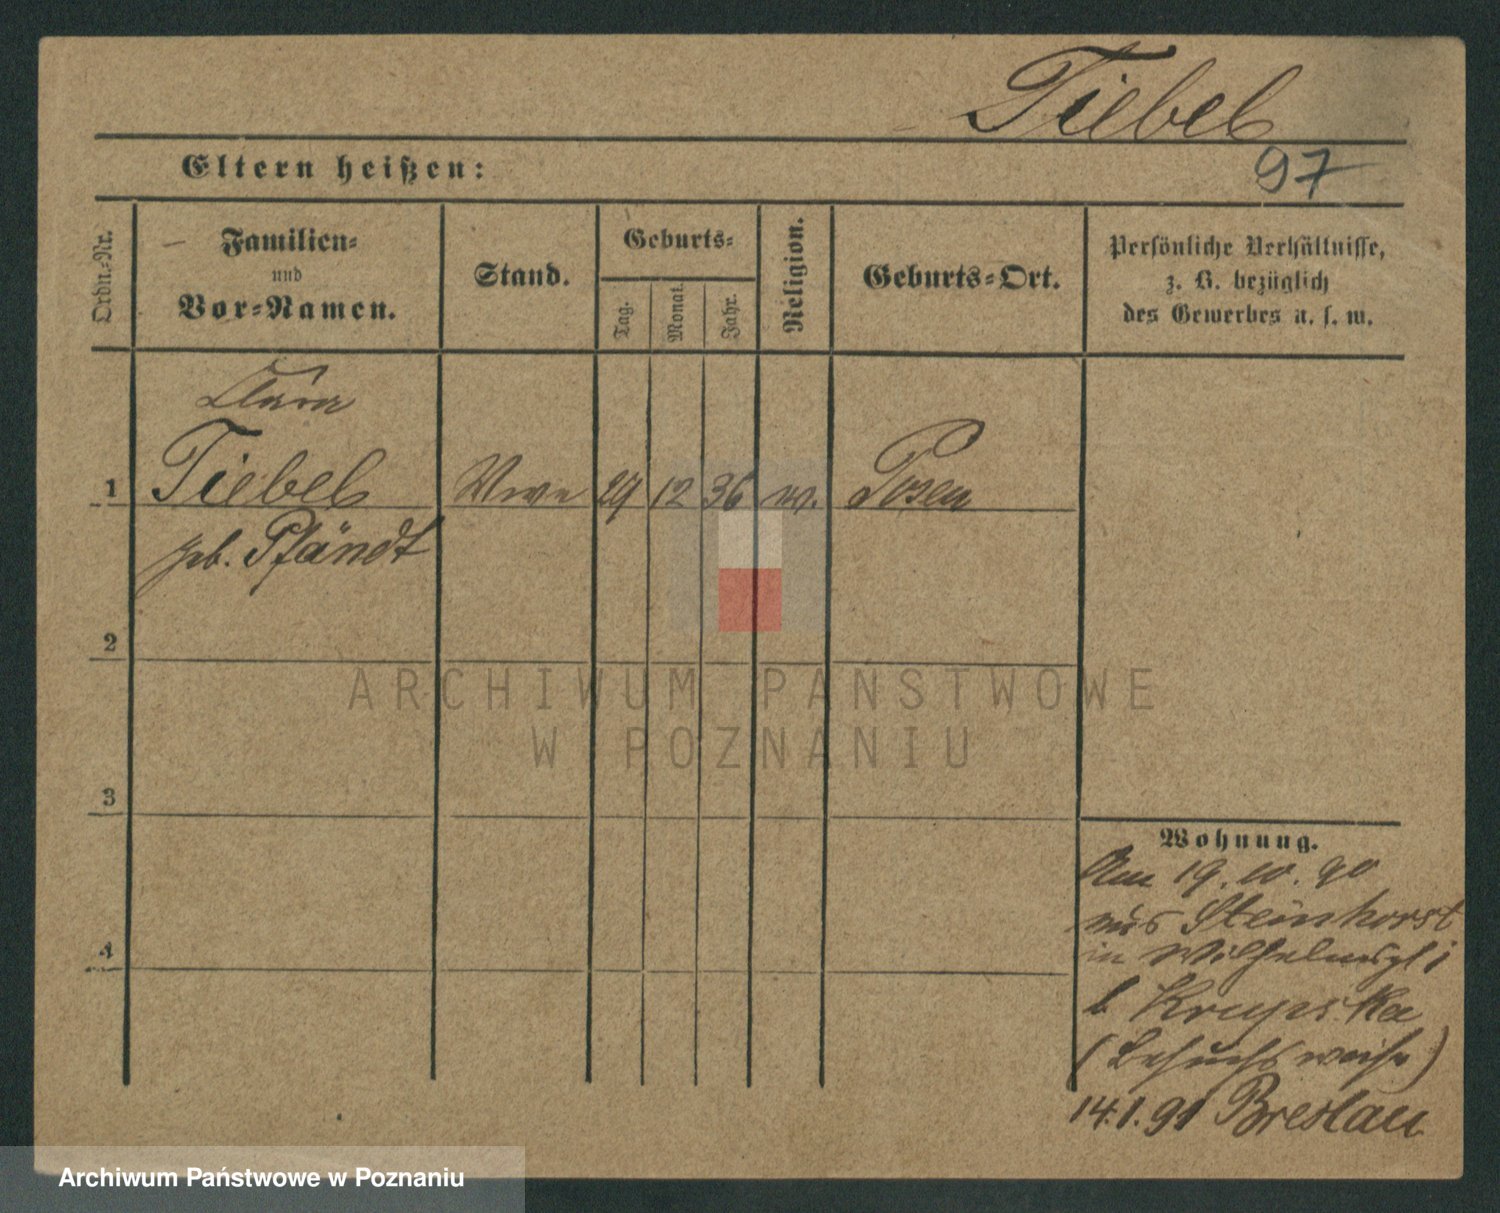 Tiebel
97
Eltern heißen:
Ordn.-Nr.
Familien-
und
Vor-Namen.
Stand.
Geburts-
Tag.
Monat.
Jahr.
Religion.
Geburts-Ort.
Persönliche Verhältnisse,
z. B. bezüglich
des Gewerbes u. s. w.
Clara
1 Tiebel Wwe 29 12 36 ev. Posen
geb. Pfändt
2
3
4
Wohnung.
Am 19.10.90
aus Steinhorst
in Wilhelmspl
b Krupska
(besuchsweise)
14.1.91 Breslau
ARCHIWUM PAŃSTWOWE
W POZNANIU
Archiwum Państwowe w Poznaniu